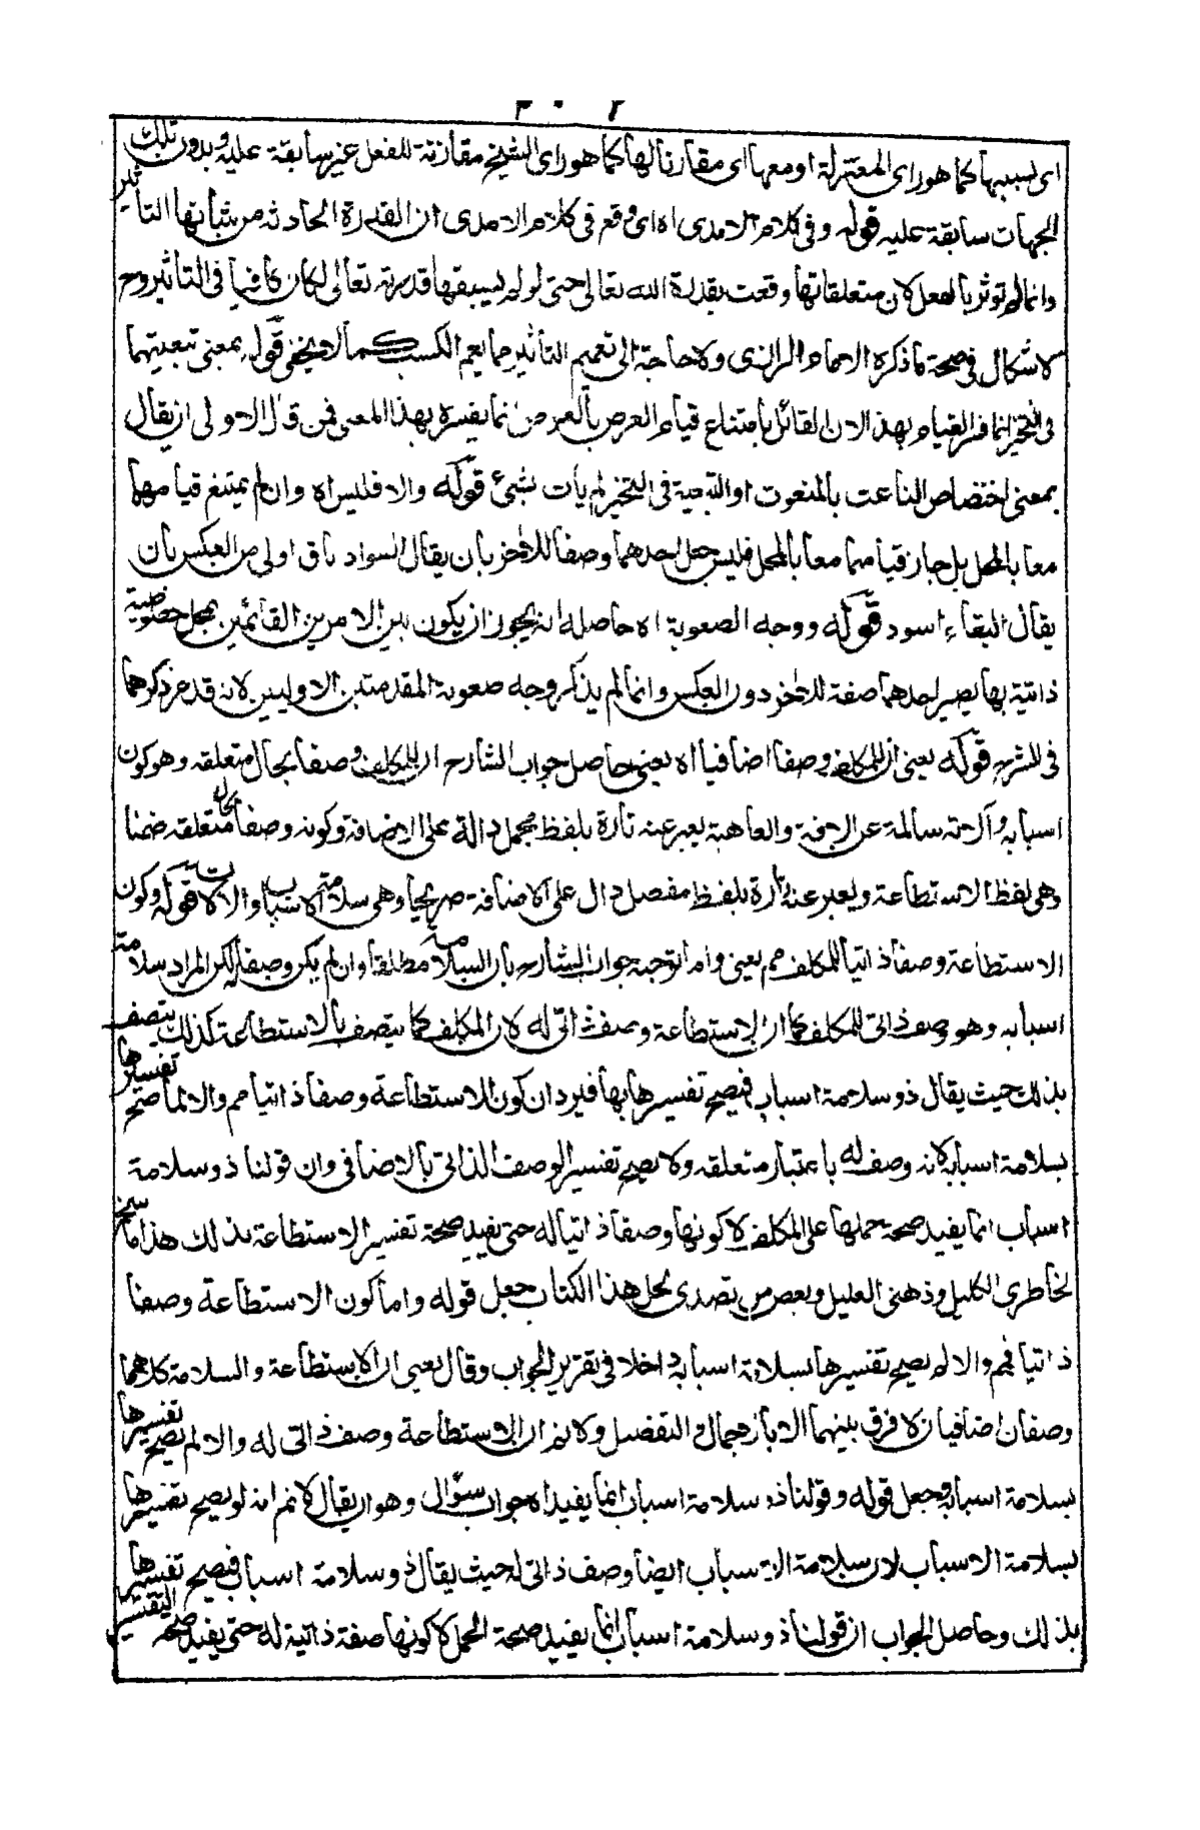 ٢٠٢
اى بسببها كما هو راى المعتزلة او معها اى مقارنا لها كما هو راى الشيخ مقارنة للفعل غير سابقة عليه وبدون تلك
الجهات سابقة عليه قوله وفى كلام الامدى اه اى وقع فى كلام الامدى ان القدرة الحادثة من شانها التاثير
وانما لم توثر بالفعل لان متعلقاتها وقعت بقدرة الله تعالى حتى لو لم يسبقها قدرته تعالى لكان كافيا فى التأثير وح
لا شكال فى صحة ما ذكره الامام الرازى ولا حاجة الى تعميم التأثير مما يعم الكسب كما لا يخفى قوله بمعنى تبعيتهما
فى التحيز انما فسر القيام بهذا لان القائل بامتناع قيام العرض بالعرض انما يفسره بهذا المعنى فمن قال الاولى ان يقال
بمعنى اختصاص الناعت بالمنعوت او التبعية فى التحيز لم يأت بشئ قوله والا فليس اه وان لم يمتنع قيامهما
معا بالمحل بل جاز قيامهما معا بالمحل فليس جعل احدهما وصفا للاخر بان يقال السواد باق اولى من العكس بان
يقال البقاء اسود قوله ووجه الصعوبة اه حاصله انه يجوز ان يكون بين الامرين القائمين بمحل خصوصية
ذاتية بها يصير احدهما صفة للاخر دون العكس وانما لم يذكر وجه صعوبة المقدمتين الاوليين لانه قد مر ذكرهما
فى الشرح قوله يعنى ان للمكلف وصفا اضافيا اه يعنى حاصل جواب الشارح ان للمكلف وصفا بحال متعلقه وهو كون
اسبابه وآلاته سالمة عن الافة والعاهة يعبر عنه تارة بلفظ مجمل دالة على الاضافة وكونه وصفا بحال متعلقه ضمنا
وهى لفظ الاستطاعة ويعبر عنه تارة بلفظ مفصل دال على الاضافة صريحا وهى سلامة الاسباب والالات قوله وكون
الاستطاعة وصفا ذاتيا للمكلف مم يعنى واما توجيه جواب الشارح بان السلامة مطلقا وان لم يكن وصفا له لكن المراد سلامة
اسبابه وهو وصف ذاتى للمكلف كما ان الاستطاعة وصف ذاتى له لان المكلف كما يتصف بالاستطاعة كذلك يتصف
بذلك حيث يقال ذو سلامة اسباب فيصح تفسيرها بها فيرد ان كون الاستطاعة وصفا ذاتيا مم والا لما صح تفسيرها
بسلامة اسبابه لانه وصف له باعتبار متعلقه ولا يصح تفسير الوصف الذاتى بالاضافى وان قولنا ذو سلامة
اسباب انما يفيد صحة حملها على المكلف لا كونها وصفا ذاتيا له حتى يفيد صحة تفسير الاستطاعة بذلك هذا ما سنح
لخاطرى الكليل وذهنى العليل وبعض من تصدى لحل هذا الكتاب جعل قوله واما كون الاستطاعة وصفا
ذاتيا فمم والا لم يصح تفسيرها بسلامة اسبابه داخلا فى تقرير الجواب وقال يعنى ان الاستطاعة والسلامة كلاهما
وصفان اضافيان لا فرق بينهما الا بالاجمال والتفصيل ولا نم ان الاستطاعة وصف ذاتى له والا لم يصح تفسيرها
بسلامة اسبابه وجعل قوله وقولنا ذو سلامة اسباب انما يفيد اه جواب سؤال وهو ان يقال لا نم انه لو يصح تفسيرها
بسلامة الاسباب لان سلامة الاسباب ايضا وصف ذاتى له حيث يقال ذو سلامة اسباب فيصح تفسيرها
بذلك وحاصل الجواب ان قولنا ذو سلامة اسباب انما يفيد صحة الحمل لا كونها صفة ذاتية له حتى يفيد صحة التفسير